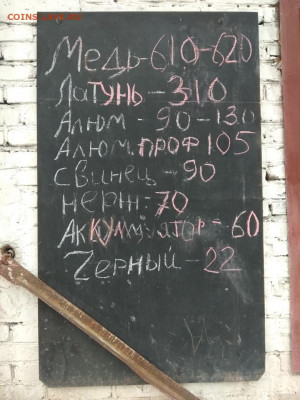 COINS
Медь-610-620
Латунь-310
Алюм-90-130
Алюм.проф 105
Свинец-90
нерж-70
Аккумулятор-60
Zерный-22